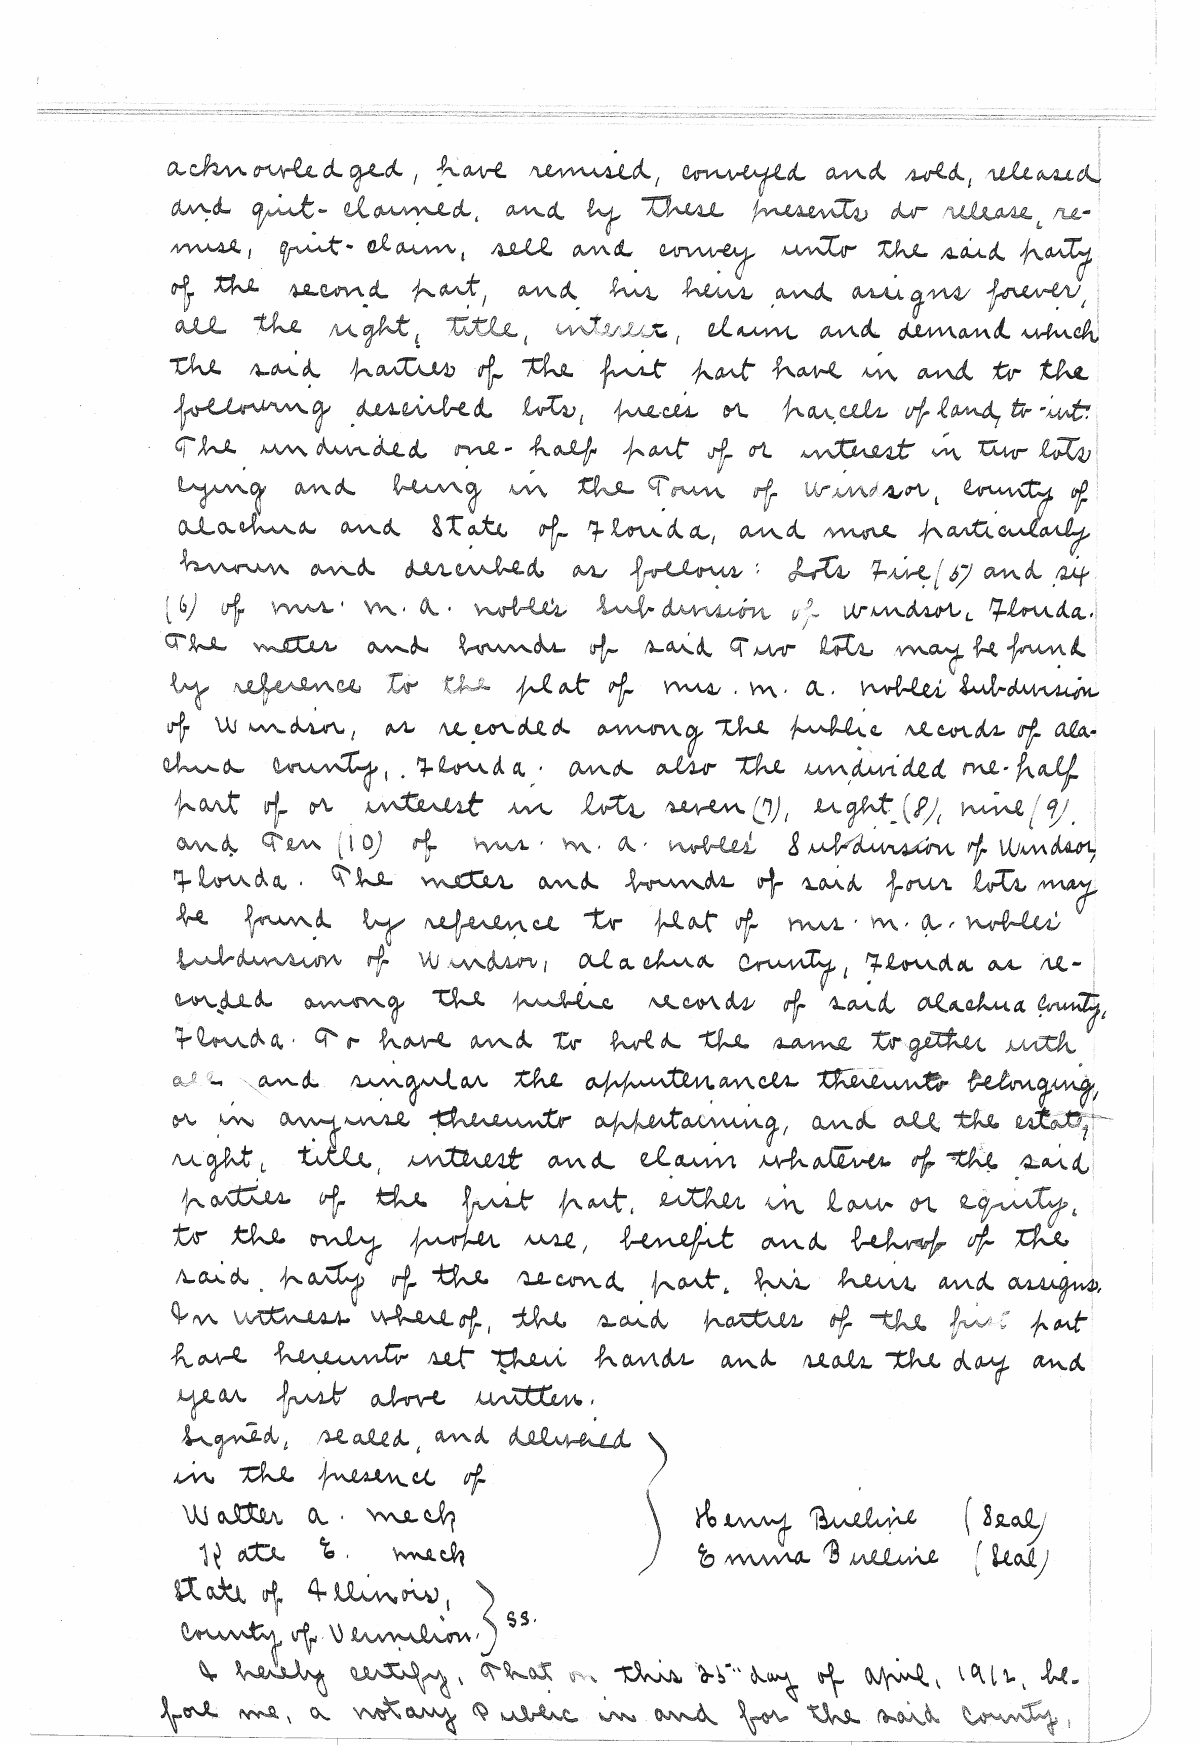 acknowledged, have remised, conveyed and sold, released
and quit-claimed, and by these presents do release, re-
mise, quit-claim, sell and convey unto the said party
of the second part, and his heirs and assigns forever,
all the right, title, interest, claim and demand which
the said parties of the first part have in and to the
following described lots, pieces or parcels of land, to-wit:
The undivided one-half part of or interest in two lots
lying and being in the Town of Windsor, County of
Alachua and State of Florida, and more particularly
known and described as follows: Lots Five (5) and six
(6) of Mrs. M. A. Nobles Subdivision of Windsor, Florida.
The metes and bounds of said Two lots may be found
by reference to the plat of Mrs. M. A. Nobles Subdivision
of Windsor, as recorded among the public records of Ala-
chua County, Florida. and also the undivided one-half
part of or interest in lots seven (7), eight (8), nine (9)
and Ten (10) of Mrs. M. A. Nobles' Subdivision of Windsor,
Florida. The metes and bounds of said four lots may
be found by reference to plat of Mrs. M. A. Nobles'
Subdivision of Windsor, Alachua County, Florida as re-
corded among the public records of said Alachua County,
Florida. To have and to hold the same together with
all and singular the appurtenances thereunto belonging,
or in anywise thereunto appertaining, and all the estate,
right, title, interest and claim whatever of the said
parties of the first part, either in law or equity,
to the only proper use, benefit and behoof of the
said party of the second part, his heirs and assigns.
In witness whereof, the said parties of the first part
have hereunto set their hands and seals the day and
year first above written.
Signed, sealed, and delivered
in the presence of
Walter A. Meck Henry Buelline (Seal)
Kate E. Meck Emma Buelline (Seal)
State of Illinois,
County of Vermilion. } ss.
I hereby certify, That on this 25" day of April, 1912, be-
fore me, a Notary Public in and for the said County,